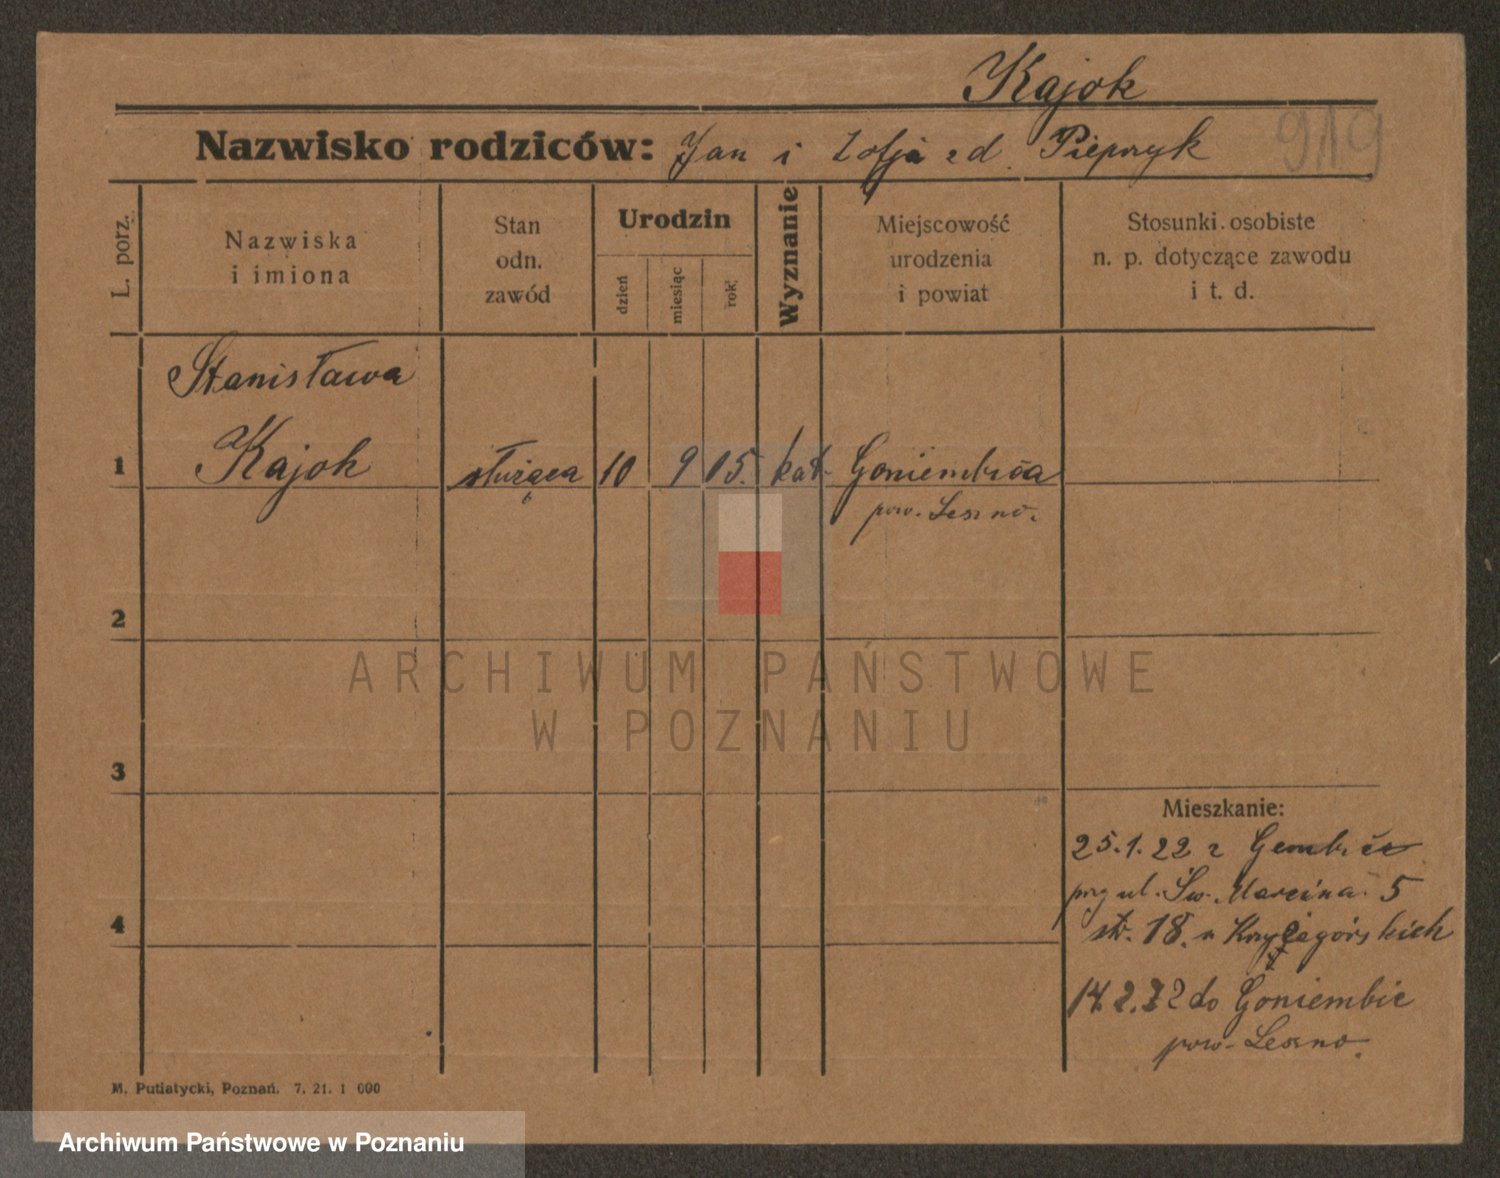 Kajok
Nazwisko rodziców: Jan i Zofja zd. Pieprzyk 919
L. porz.
Nazwiska
i imiona
Stan
odn.
zawód
Urodzin
dzień
miesiąc
rok
Wyznanie
Miejscowość
urodzenia
i powiat
Stosunki osobiste
n. p. dotyczące zawodu
i t. d.
Stanisława
1 Kajok służąca 10 9 05. kat. Goniembica
pow. Leszno.
2
3
4
Mieszkanie:
25.1.22 z
przy ul. Św. Marcina 5
str. 18. u
14.2.22 do Goniembic
pow. Leszno.
M. Putiatycki, Poznań. 7. 21. 1 000
ARCHIWUM PAŃSTWOWE
W POZNANIU
Archiwum Państwowe w Poznaniu